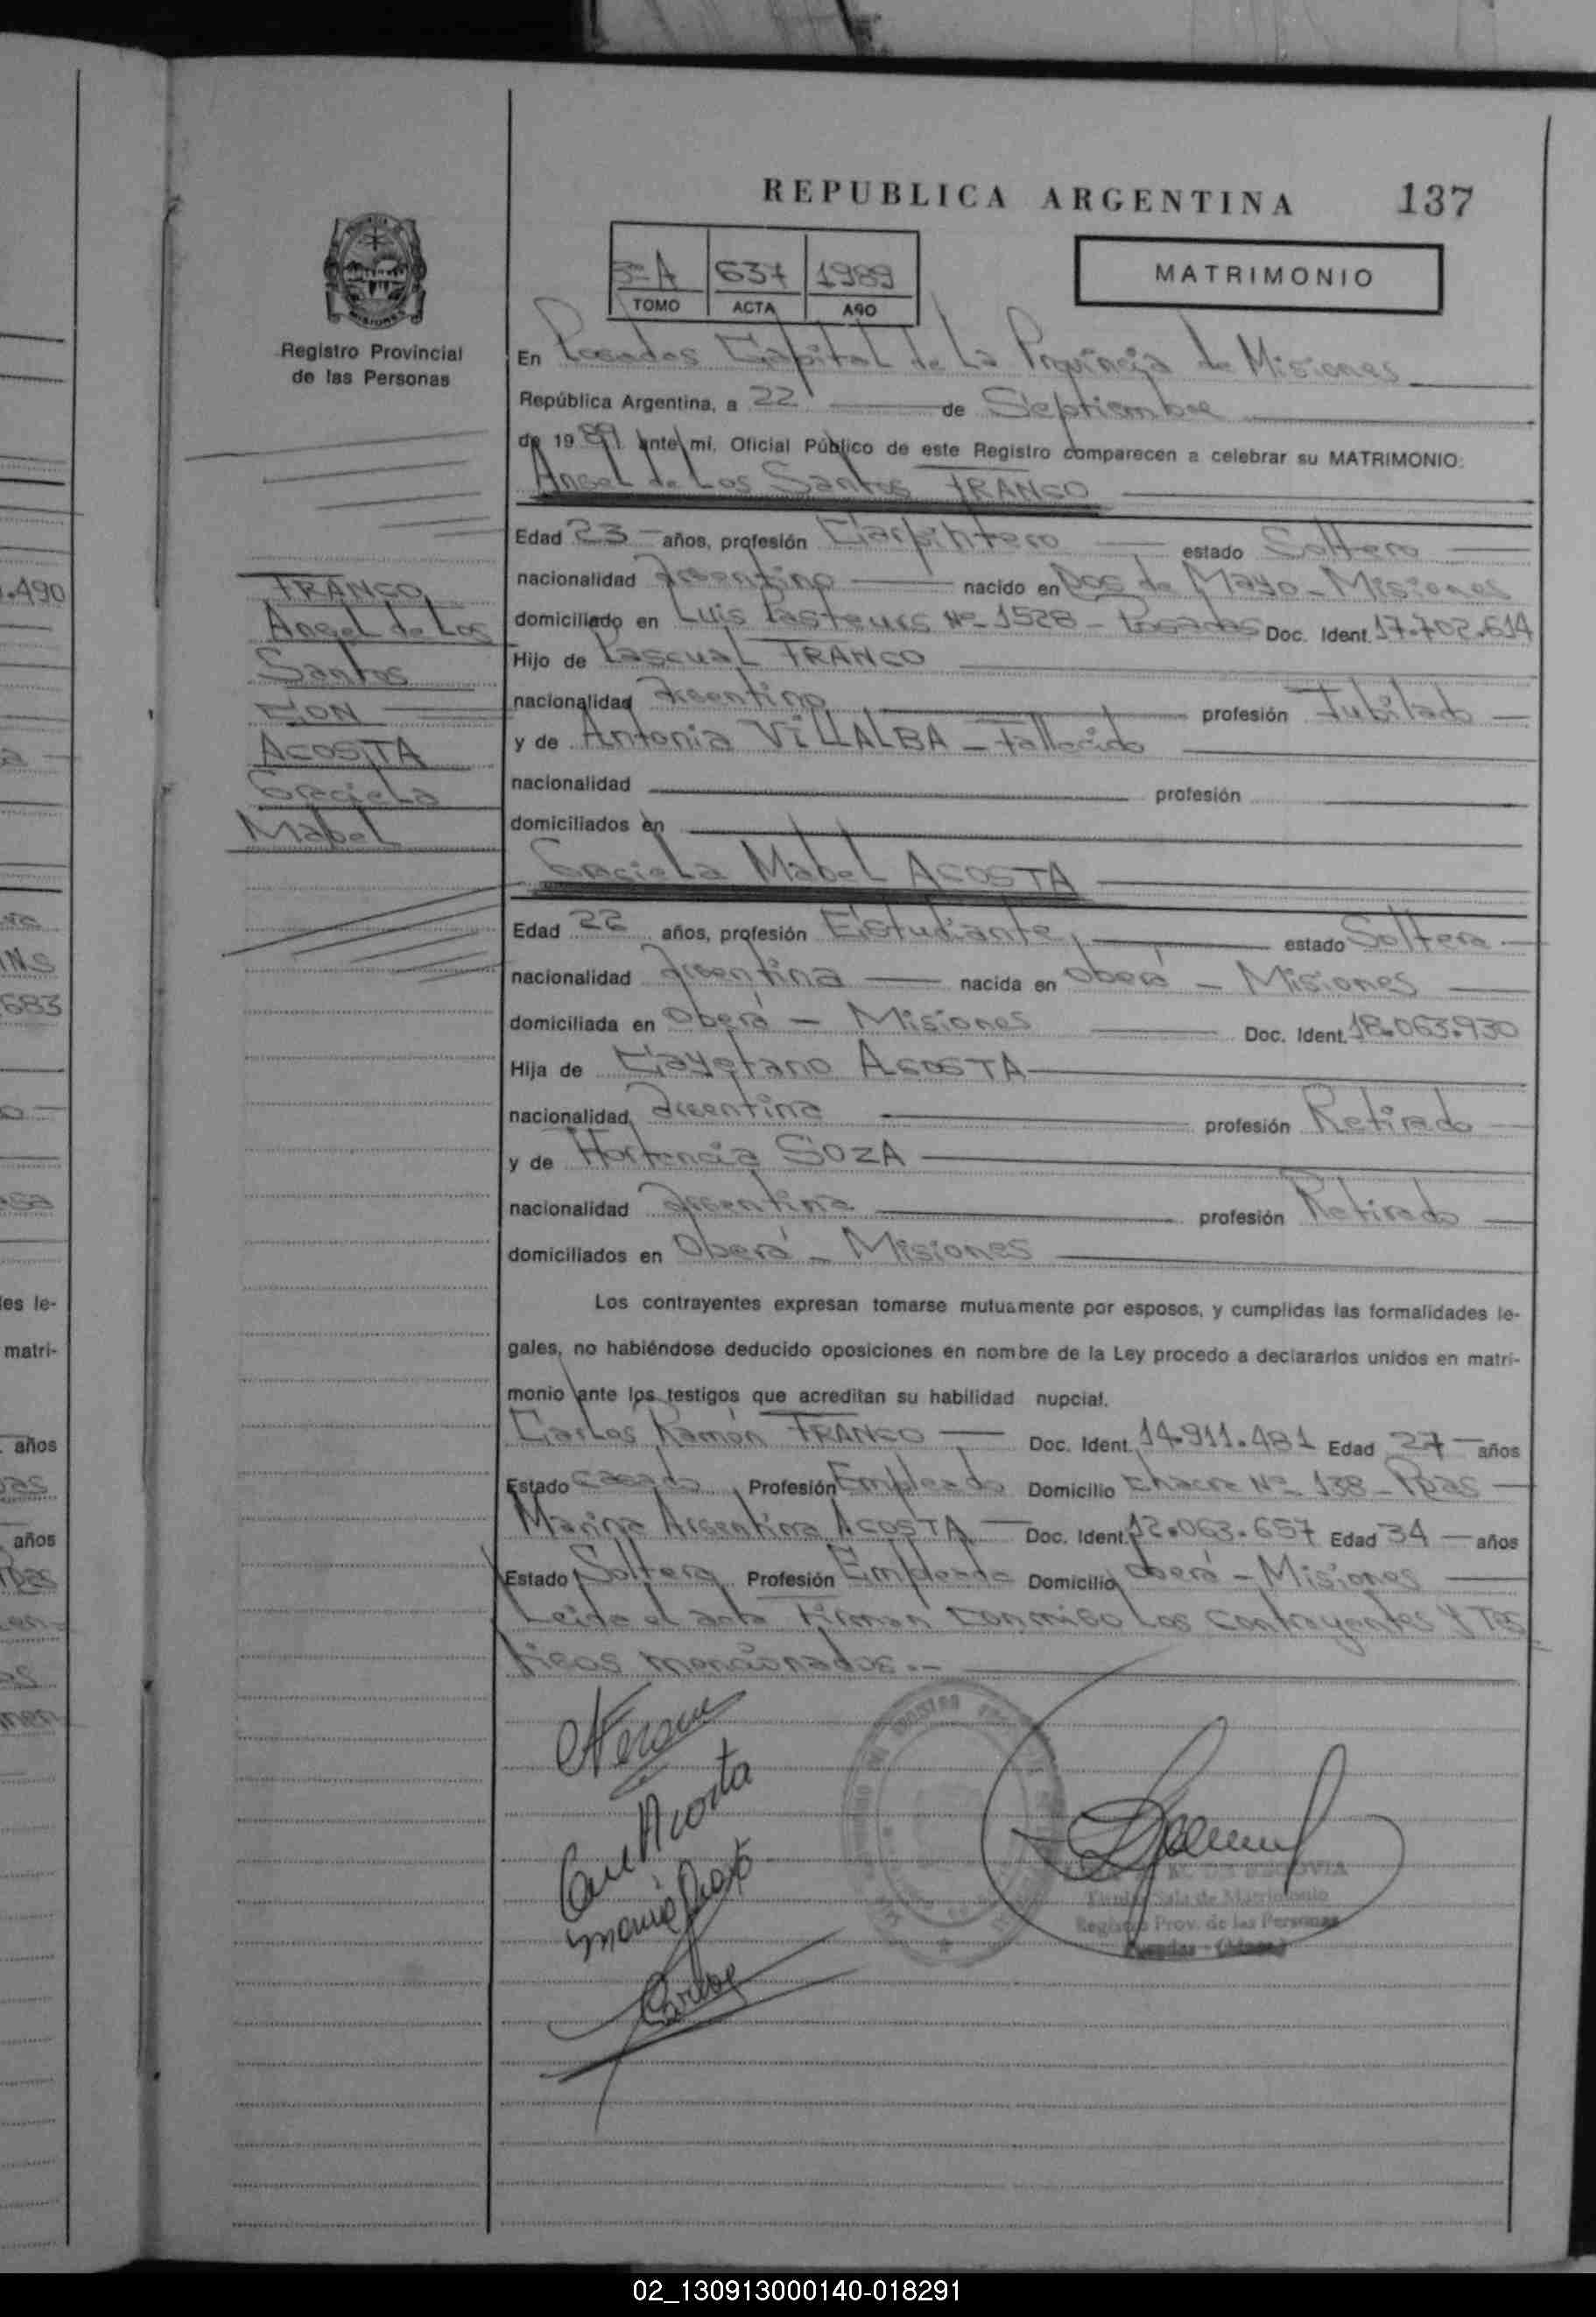 REPUBLICA ARGENTINA 137
3º A 637 1989
TOMO ACTA AÑO
MATRIMONIO
MISIONES
Registro Provincial
de las Personas
En Posadas Capital de La Provincia de Misiones
República Argentina, a 22 de Septiembre
de 1989 ante mi, Oficial Público de este Registro comparecen a celebrar su MATRIMONIO:
Angel de Los Santos FRANCO
Edad 23 años, profesión Carpintero estado Soltero
nacionalidad Argentino nacido en Dos de Mayo - Misiones
domiciliado en Luis Pasteurs Nº 1528 - Posadas Doc. Ident. 17.702.614
Hijo de Pascual FRANCO
nacionalidad Argentino profesión Jubilado
y de Antonia VILLALBA - Fallecido
nacionalidad profesión
domiciliados en
FRANCO
Angel de Los
Santos
CON
ACOSTA
Graciela
Mabel
Graciela Mabel ACOSTA
Edad 22 años, profesión Estudiante, estado Soltera
nacionalidad Argentina nacida en Oberá - Misiones
domiciliada en Oberá - Misiones Doc. Ident. 18.063.930
Hija de Cayetano ACOSTA
nacionalidad Argentina profesión Retirado
y de Hortencia SOZA
nacionalidad Argentina profesión Retirado
domiciliados en Oberá - Misiones
Los contrayentes expresan tomarse mutuamente por esposos, y cumplidas las formalidades le-
gales, no habiéndose deducido oposiciones en nombre de la Ley procedo a declararlos unidos en matri-
monio ante los testigos que acreditan su habilidad nupcial.
Carlos Ramón FRANCO Doc. Ident. 14.911.481 Edad 27 años
Estado Casado Profesión Empleado Domicilio Chacra Nº 138 - Pdas
Marina Argentina ACOSTA Doc. Ident. 12.063.657 Edad 34 años
Estado Soltera Profesión Empleada Domicilio Oberá - Misiones
Leida el acta Firman conmigo Los Contrayentes y Tes
tigos mencionados.-
Acosta
Titular Sala de Matrimonio
Registro Prov. de las Personas
.490
683
les le-
matri-
años
años
02_130913000140-018291